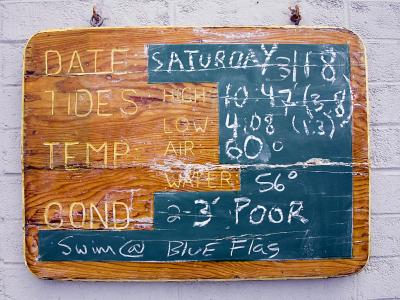 DATE SATURDAY 3/18
TIDES HIGH 10:47 (3.8)
LOW 4:08 (1.3)
TEMP AIR 60°
WATER 56°
COND 2-3' POOR
SWIM @ BLUE FLAG